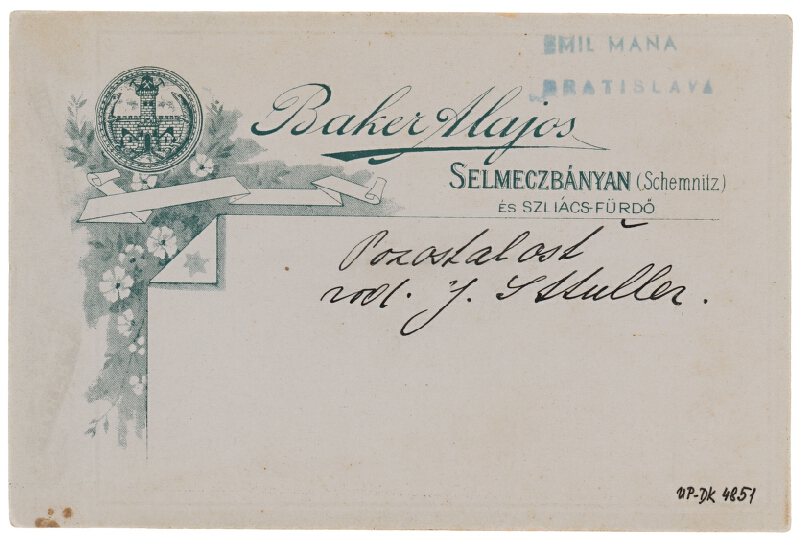 EMIL MANA
BRATISLAVA
Baker Alajos
SELMECZBÁNYAN (Schemnitz)
ÉS SZLIÁCS-FÜRDŐ
Pozostalosť
rod. J.
UP-DK 4851